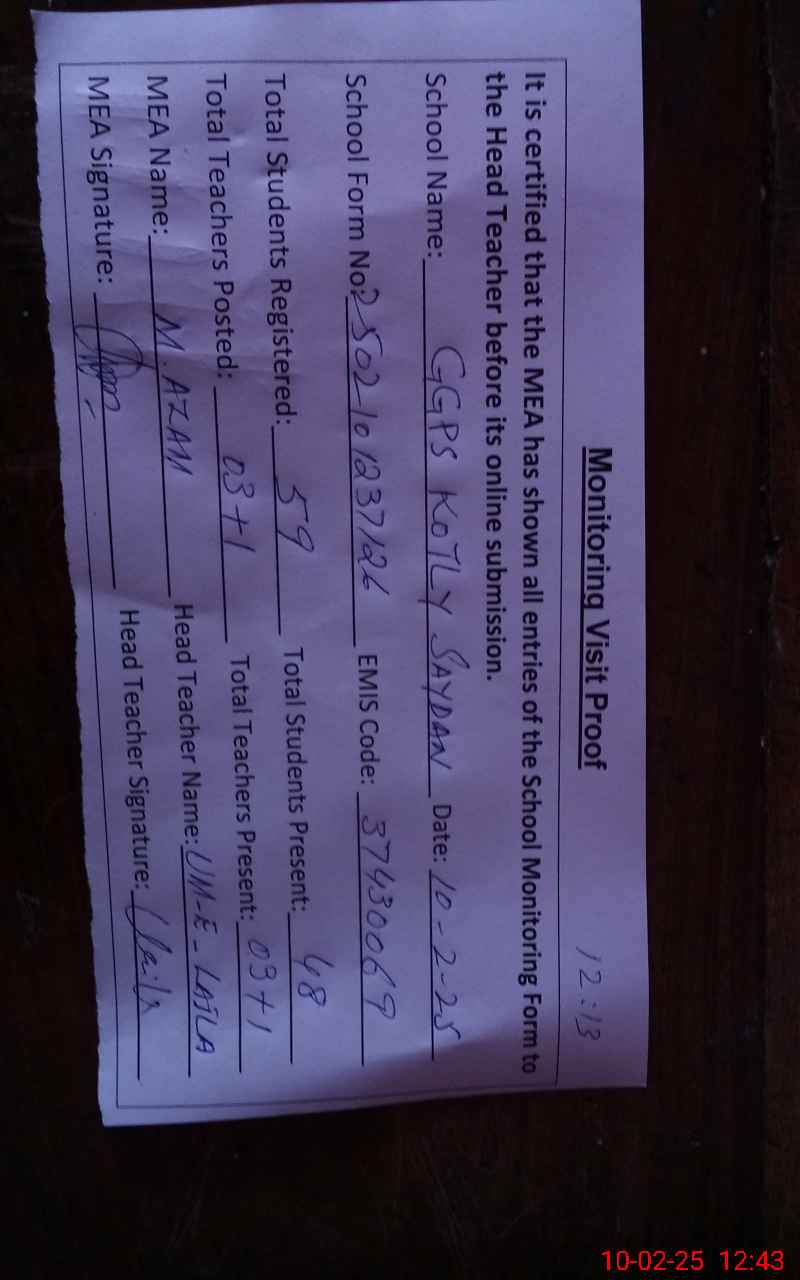 12:13
Monitoring Visit Proof
It is certified that the MEA has shown all entries of the School Monitoring Form to
the Head Teacher before its online submission.
School Name: GGPS KOTLY SAYDAN Date: 10-2-25
School Form No: 2502101237126 EMIS Code: 37430069
Total Students Registered: 59 Total Students Present: 48
Total Teachers Posted: 03+1 Total Teachers Present: 03+1
MEA Name: M. AZAM Head Teacher Name: UM-E-LAILA
MEA Signature: Head Teacher Signature: Laila
10-02-25 12:43